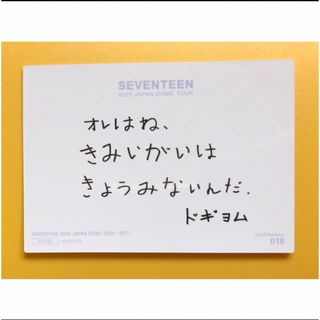 SEVENTEEN
2020 JAPAN DOME TOUR
オレはね、
きみいがいは
きょうみないんだ.
ドギョム
SEVENTEEN 2020 JAPAN DOME TOUR <SVT>
018